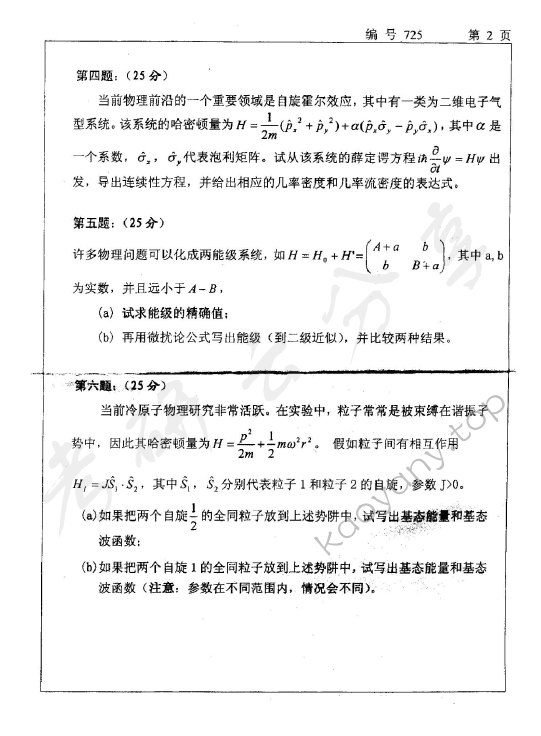 编 号 725 第 2 页
第四题：（25 分）
当前物理前沿的一个重要领域是自旋霍尔效应，其中有一类为二维电子气
型系统。该系统的哈密顿量为 $H=\frac{1}{2m}(\hat{p}_x{}^2+\hat{p}_y{}^2)+\alpha(\hat{p}_x\hat{\sigma}_y-\hat{p}_y\hat{\sigma}_x)$，其中 $\alpha$ 是
一个系数，$\hat{\sigma}_x$，$\hat{\sigma}_y$代表泡利矩阵。试从该系统的薛定谔方程 $i\hbar\frac{\partial}{\partial t}\psi=H\psi$ 出
发，导出连续性方程，并给出相应的几率密度和几率流密度的表达式。
第五题：（25 分）
许多物理问题可以化成两能级系统，如 $H=H_0+H'=\begin{pmatrix}A+a & b\\ b & B+a\end{pmatrix}$，其中 a, b
为实数，并且远小于 $A-B$，
(a) 试求能级的精确值；
(b) 再用微扰论公式写出能级（到二级近似），并比较两种结果。
第六题：（25 分）
当前冷原子物理研究非常活跃。在实验中，粒子常常是被束缚在谐振子
势中，因此其哈密顿量为 $H=\frac{p^2}{2m}+\frac{1}{2}m\omega^2r^2$。 假如粒子间有相互作用
$H_I=J\hat{S}_1\cdot\hat{S}_2$，其中 $\hat{S}_1$，$\hat{S}_2$ 分别代表粒子 1 和粒子 2 的自旋，参数 J>0。
(a)如果把两个自旋 $\frac{1}{2}$ 的全同粒子放到上述势阱中，试写出基态能量和基态
波函数；
(b)如果把两个自旋 1 的全同粒子放到上述势阱中，试写出基态能量和基态
波函数（注意：参数在不同范围内，情况会不同）。
考研云分享
kaoyany.top